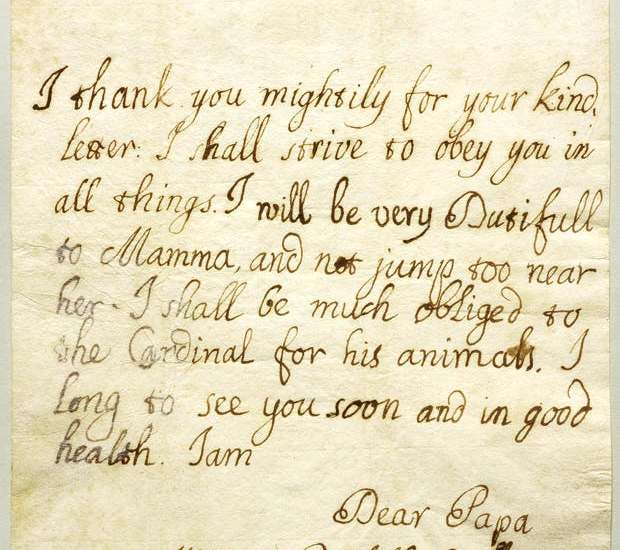 I thank you mightily for your kind
letter: I shall strive to obey you in
all things. I will be very Dutifull
to Mamma, and not jump too near
her. I shall be much obliged to
the Cardinal for his animals. I
long to see you soon and in good
health. I am
Dear Papa